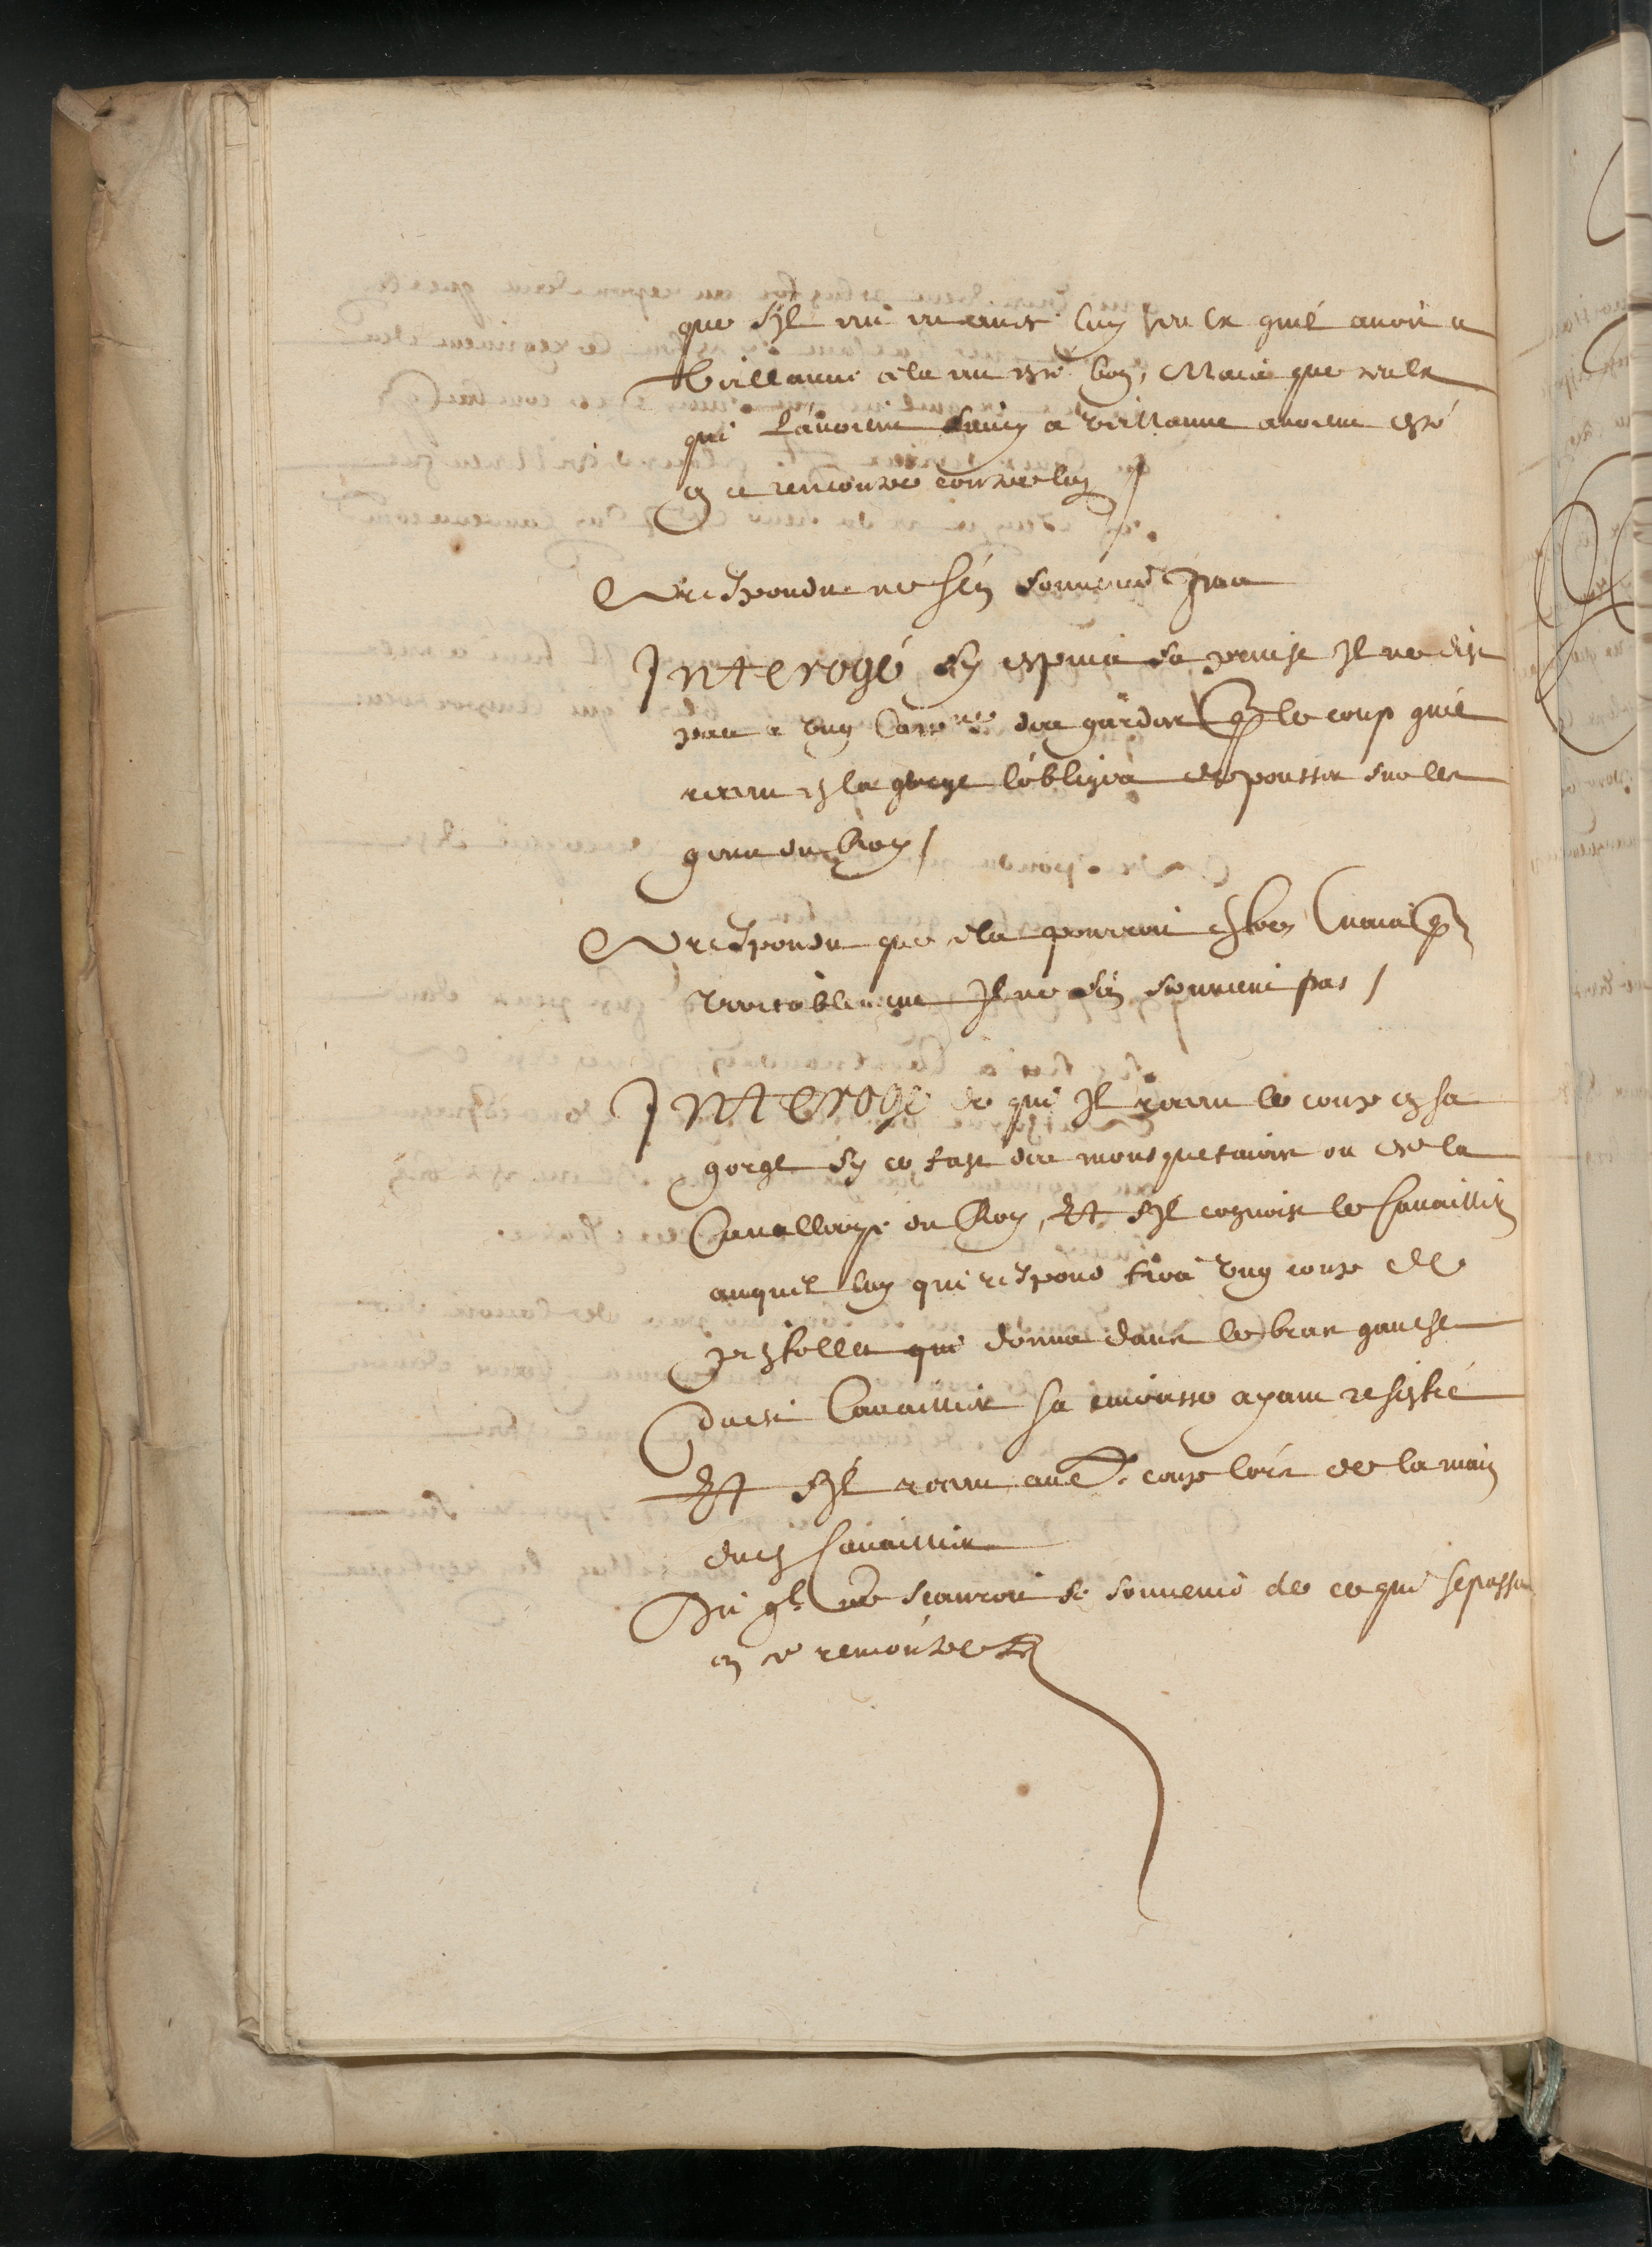 que s'il eut eu avec luy tous ceux qu'il avoit a
veillanne cela eut esté bon, Mais que ceulx
qui l'avoient suivy a veillanne avoient esté
en ce rencontre contre luy /
A respondu ne s'en souvenir pas
Interogé sy apres sa prinse Il ne dist
pas a ung Cappne des gardes que le coup qu'il
receu en la gorge l'obligea de pousser sur les
gens du Roy /
A respondu que cela pourroit estre mais que
veritablement Il ne s'en souvient pas /
Interogé de qui Il receu le coup en sa
gorge sy ce fust des mousquetaires ou de la
Cavallerye du Roy, Et s'Il cognoist le Cavaillier
auquel luy qui respond tira ung coup de
pistollet qui donna dans le bras gauche
dudit Cavaillier sa cuirasse ayant resisté
Et s'Il receu aucun coup lors de la main
dud Cavaillier
Dit qu'Il ne scauroit se souvenir de ce qui se passa
en ce rencontre